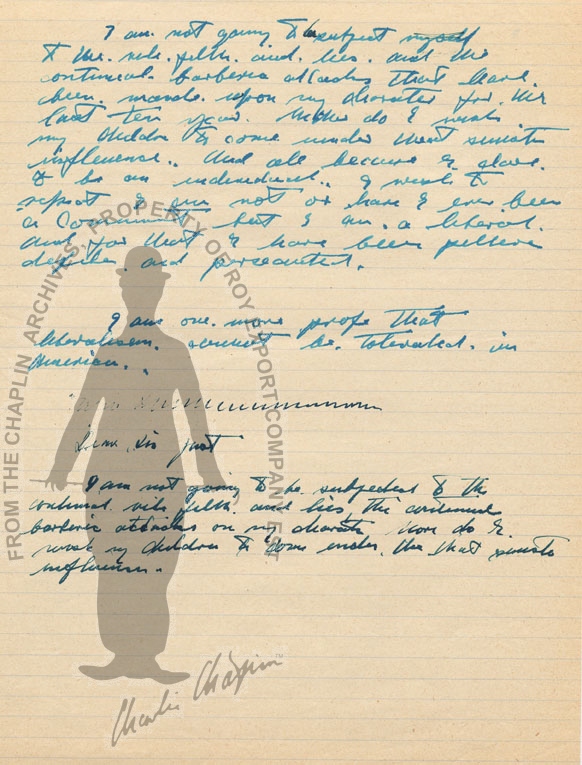 I am not going to subject myself
to the vile filth and lies and the
continual barberic attacks that have
been made upon my character for the
last ten years. Neither do I wish
my children to come under that sinister
influence.. And all because I dare
to be an individual.. I wish to
repeat I am not or have I ever been
a Communist but I am a liberal.
and for that I have been
and persecuted.
I am one more profe that
liberalism cannot be tolerated in
American..
Dear Sir just
I am not going to be subjected to the
continual vile filth and lies, the continual
barberic attacks on my character nor do I
wish my children to come under the that sinister
influence..
FROM THE CHAPLIN ARCHIVES, PROPERTY OF ROY EXPORT COMPANY EST
Charlie Chaplin